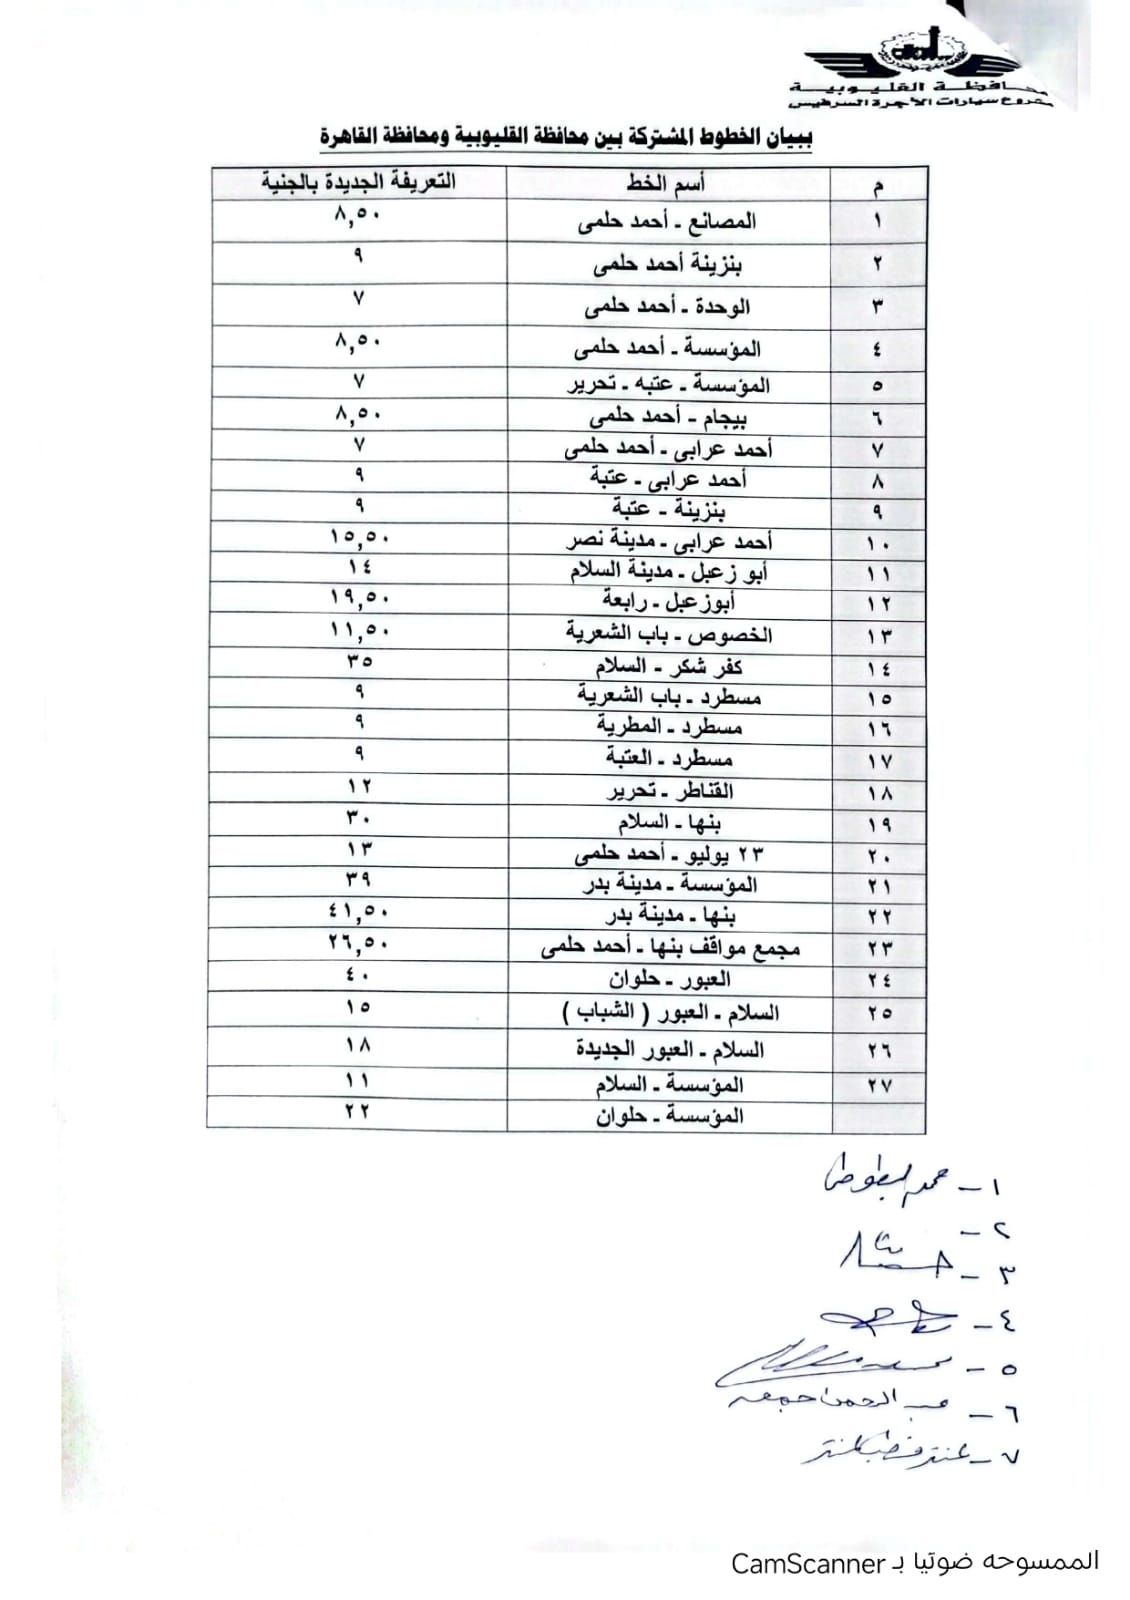 محافظة القليوبية
مشروع سيارات الأجرة السرفيس
ببيان الخطوط المشتركة بين محافظة القليوبية ومحافظة القاهرة
م أسم الخط التعريفة الجديدة بالجنية
١ المصانع - أحمد حلمى ٨,٥٠
٢ بنزينة أحمد حلمى ٩
٣ الوحدة - أحمد حلمى ٧
٤ المؤسسة - أحمد حلمى ٨,٥٠
٥ المؤسسة - عتبه - تحرير ٧
٦ بيجام - أحمد حلمى ٨,٥٠
٧ أحمد عرابى - أحمد حلمى ٧
٨ أحمد عرابى - عتبة ٩
٩ بنزينة - عتبة ٩
١٠ أحمد عرابى - مدينة نصر ١٥,٥٠
١١ أبو زعبل - مدينة السلام ١٤
١٢ أبوزعبل - رابعة ١٩,٥٠
١٣ الخصوص - باب الشعرية ١١,٥٠
١٤ كفر شكر - السلام ٣٥
١٥ مسطرد - باب الشعرية ٩
١٦ مسطرد - المطرية ٩
١٧ مسطرد - العتبة ٩
١٨ القناطر - تحرير ١٢
١٩ بنها - السلام ٣٠
٢٠ ٢٣ يوليو - أحمد حلمى ١٣
٢١ المؤسسة - مدينة بدر ٣٩
٢٢ بنها - مدينة بدر ٤١,٥٠
٢٣ مجمع مواقف بنها - أحمد حلمى ٢٦,٥٠
٢٤ العبور - حلوان ٤٠
٢٥ السلام - العبور ( الشباب ) ١٥
٢٦ السلام - العبور الجديدة ١٨
٢٧ المؤسسة - السلام ١١
المؤسسة - حلوان ٢٢
١ - محمد
٢ -
٣ -
٤ -
٥ - محمد
٦ - عبد الرحمن جمعه
٧ -
الممسوحه ضوئيا بـ CamScanner